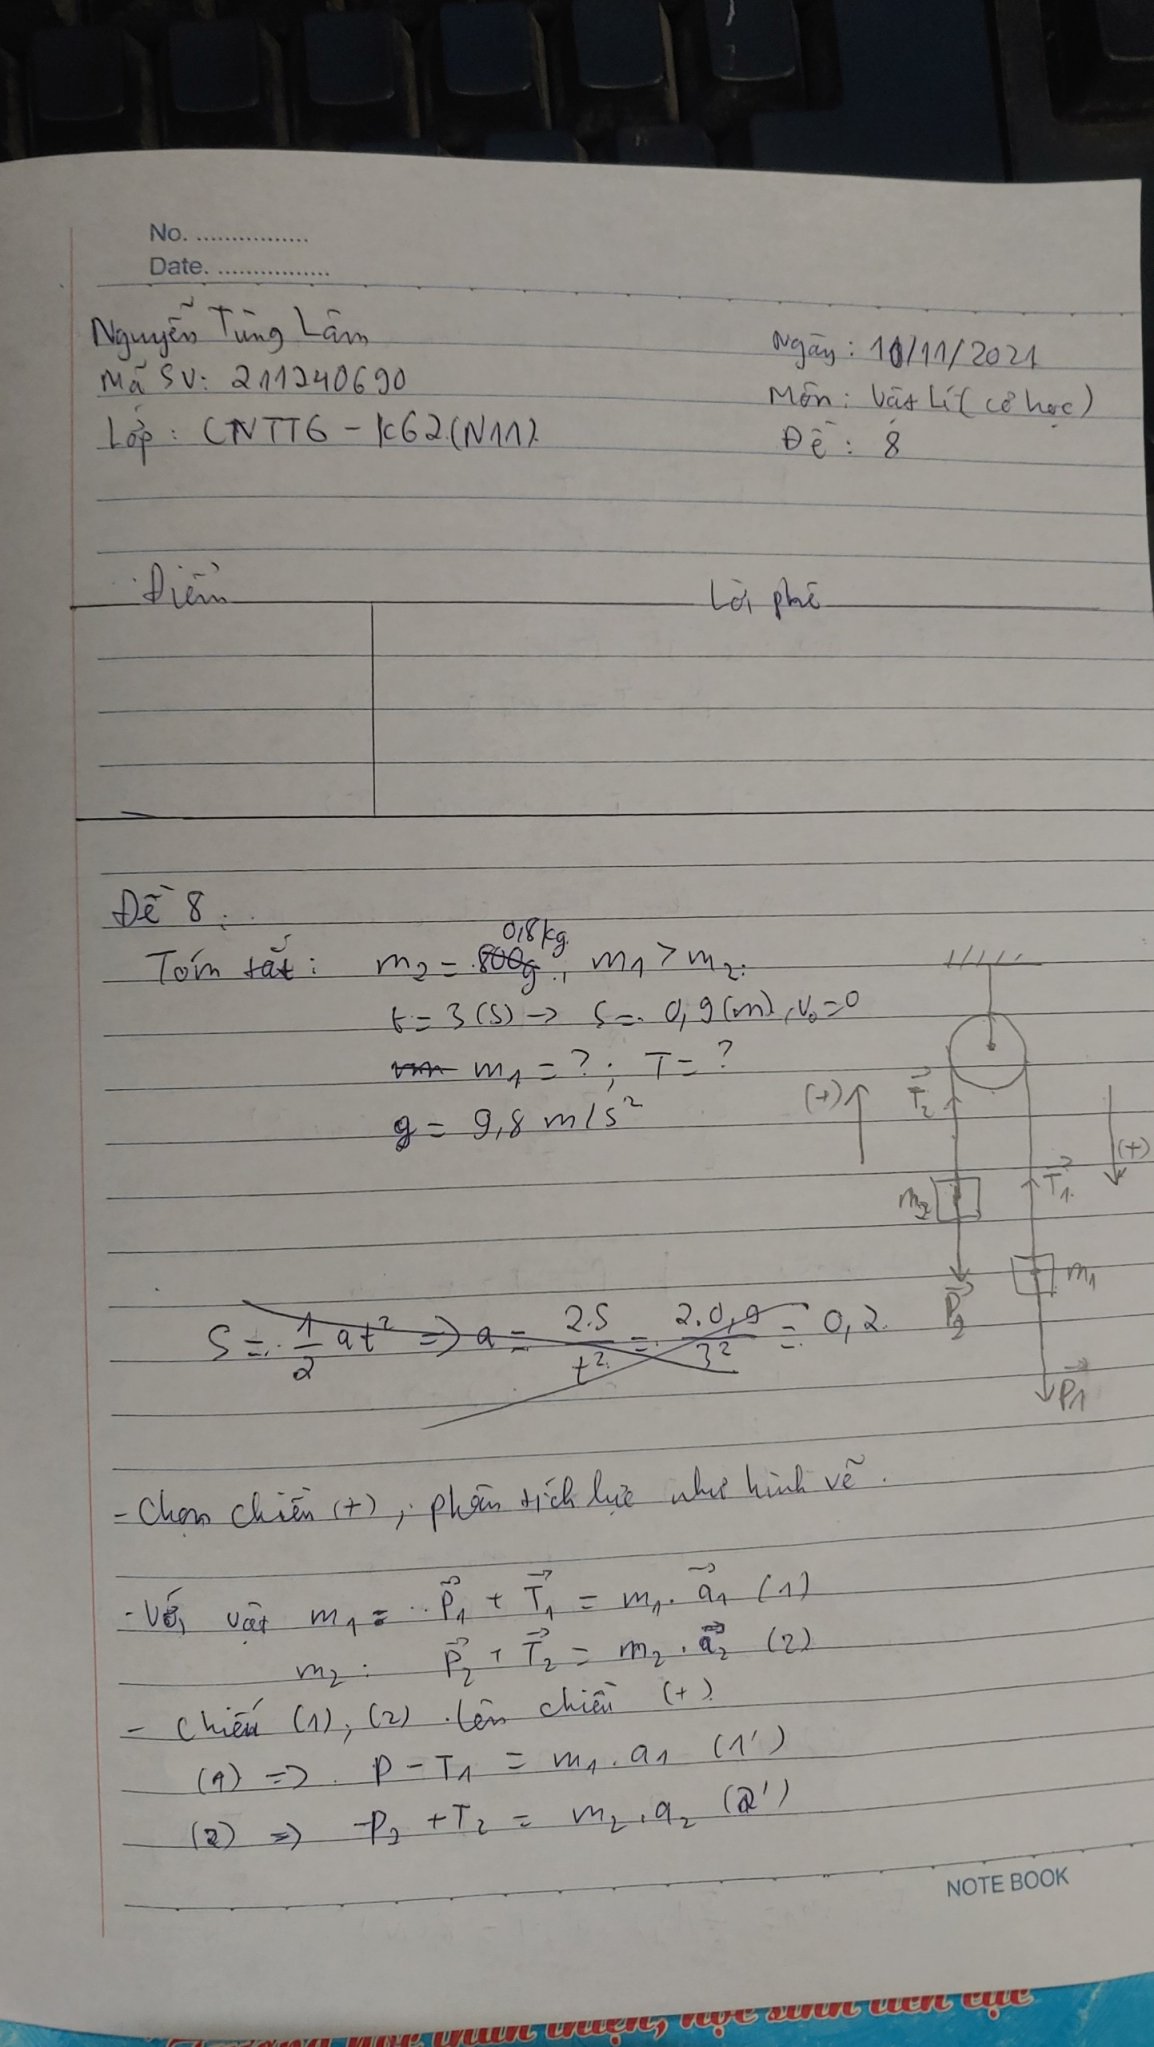 No. ................
Date. ................
Nguyễn Tùng Lâm
Mã SV: 211240690
Lớp: CNTT6 - K62(N11)
Ngày: 10/11/2021
Môn: Vật Lí (cơ học)
Đề: 8
Điểm
Lời phê
Đề 8:
0,8kg
Tóm tắt: m2 = 800g, m1 > m2.
t = 3 (s) → s = 0,9 (m), v0 = 0
m1 = ?; T = ?
g = 9,8 m/s²
(+) T2 (+)
m2 T1
m1
P2
P1
S = 1/2 at² => a = 2.S/t² = 2.0,9/3² = 0,2
- Chọn chiều (+), phân tích lực như hình vẽ.
- Với vật m1 = P1 + T1 = m1. a1 (1)
m2: P2 + T2 = m2. a2 (2)
- Chiếu (1), (2) lên chiều (+)
(1) => P - T1 = m1. a1 (1')
(2) => -P2 + T2 = m2. a2 (2')
NOTE BOOK
học thân thiện, học sinh tích cực